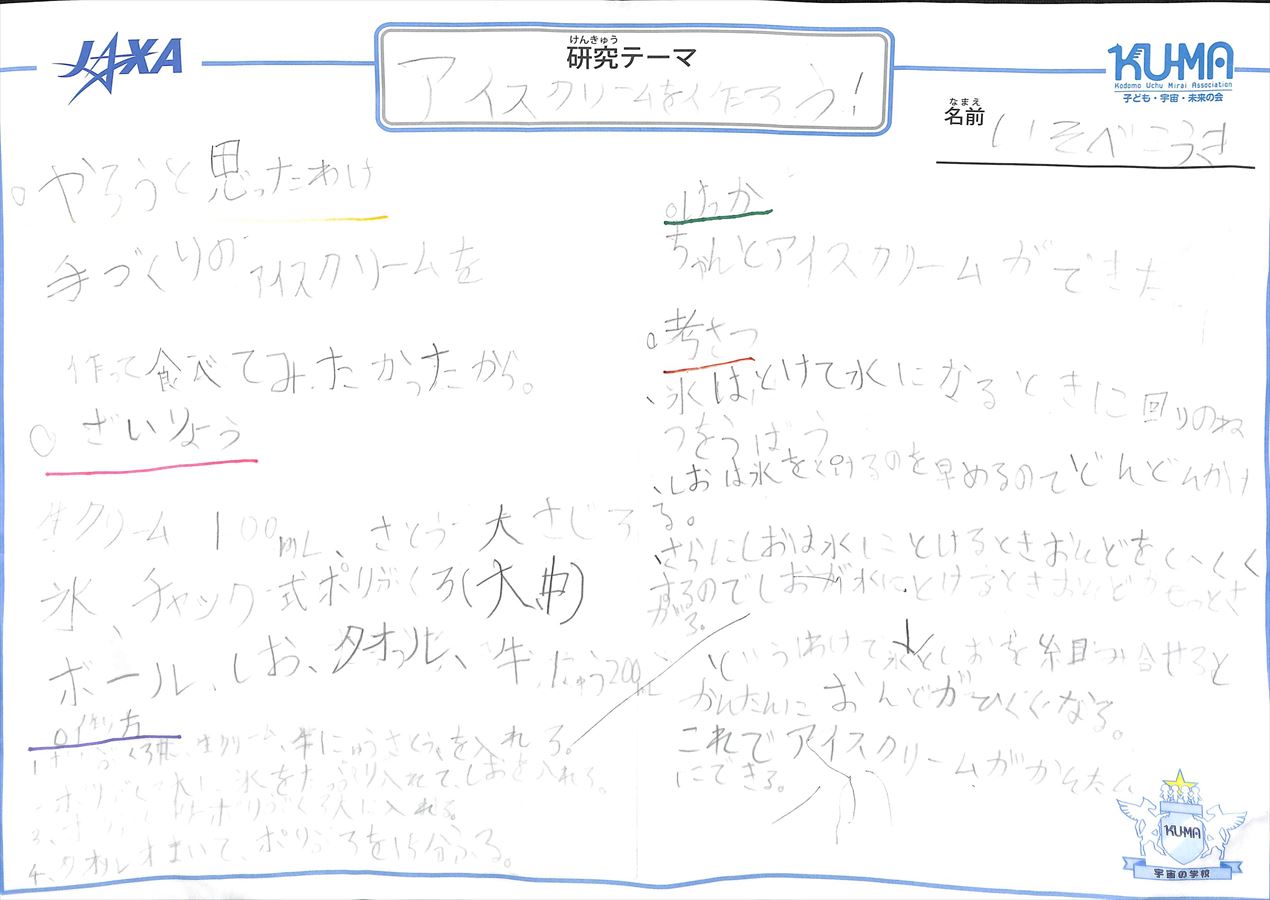 JAXA
けんきゅう
研究テーマ
アイスクリームを作ろう!
KU-MA
Kodomo Uchu Mirai Association
子ども・宇宙・未来の会
なまえ
名前
いそべこうき
○やろうと思ったわけ
手づくりのアイスクリームを
作って食べてみたかったから。
○ざいりょう
生クリーム 100mL、さとう 大さじ3
氷、チャック式ポリぶくろ(大、中)
ボール、しお、タオル、牛にゅう200mL
○作り方
1 ぶくろ中、生クリーム、牛にゅう、さとうを入れる。
ポリぶくろ大に氷をたっぷり入れて、しおを入れる。
3、ポリぶくろ大に入れる。
4、タオルをまいて、ポリぶくろを15分ふる。
○けっか
ちゃんとアイスクリームができた。
○考さつ
、氷はとけて水になるときに回りのね
つをうばう
、しおは氷をとけるのを早めるのでどんどんかけ
る。
、さらにしおは水にとけるときおんどをひくく
するのでしおが水にとけるときおんどがもっとさ
がる。
、というわけで氷としおを組み合せると
かんたんにおんどがひくくなる。
これでアイスクリームがかんたん
にできる。
KU-MA
宇宙の学校